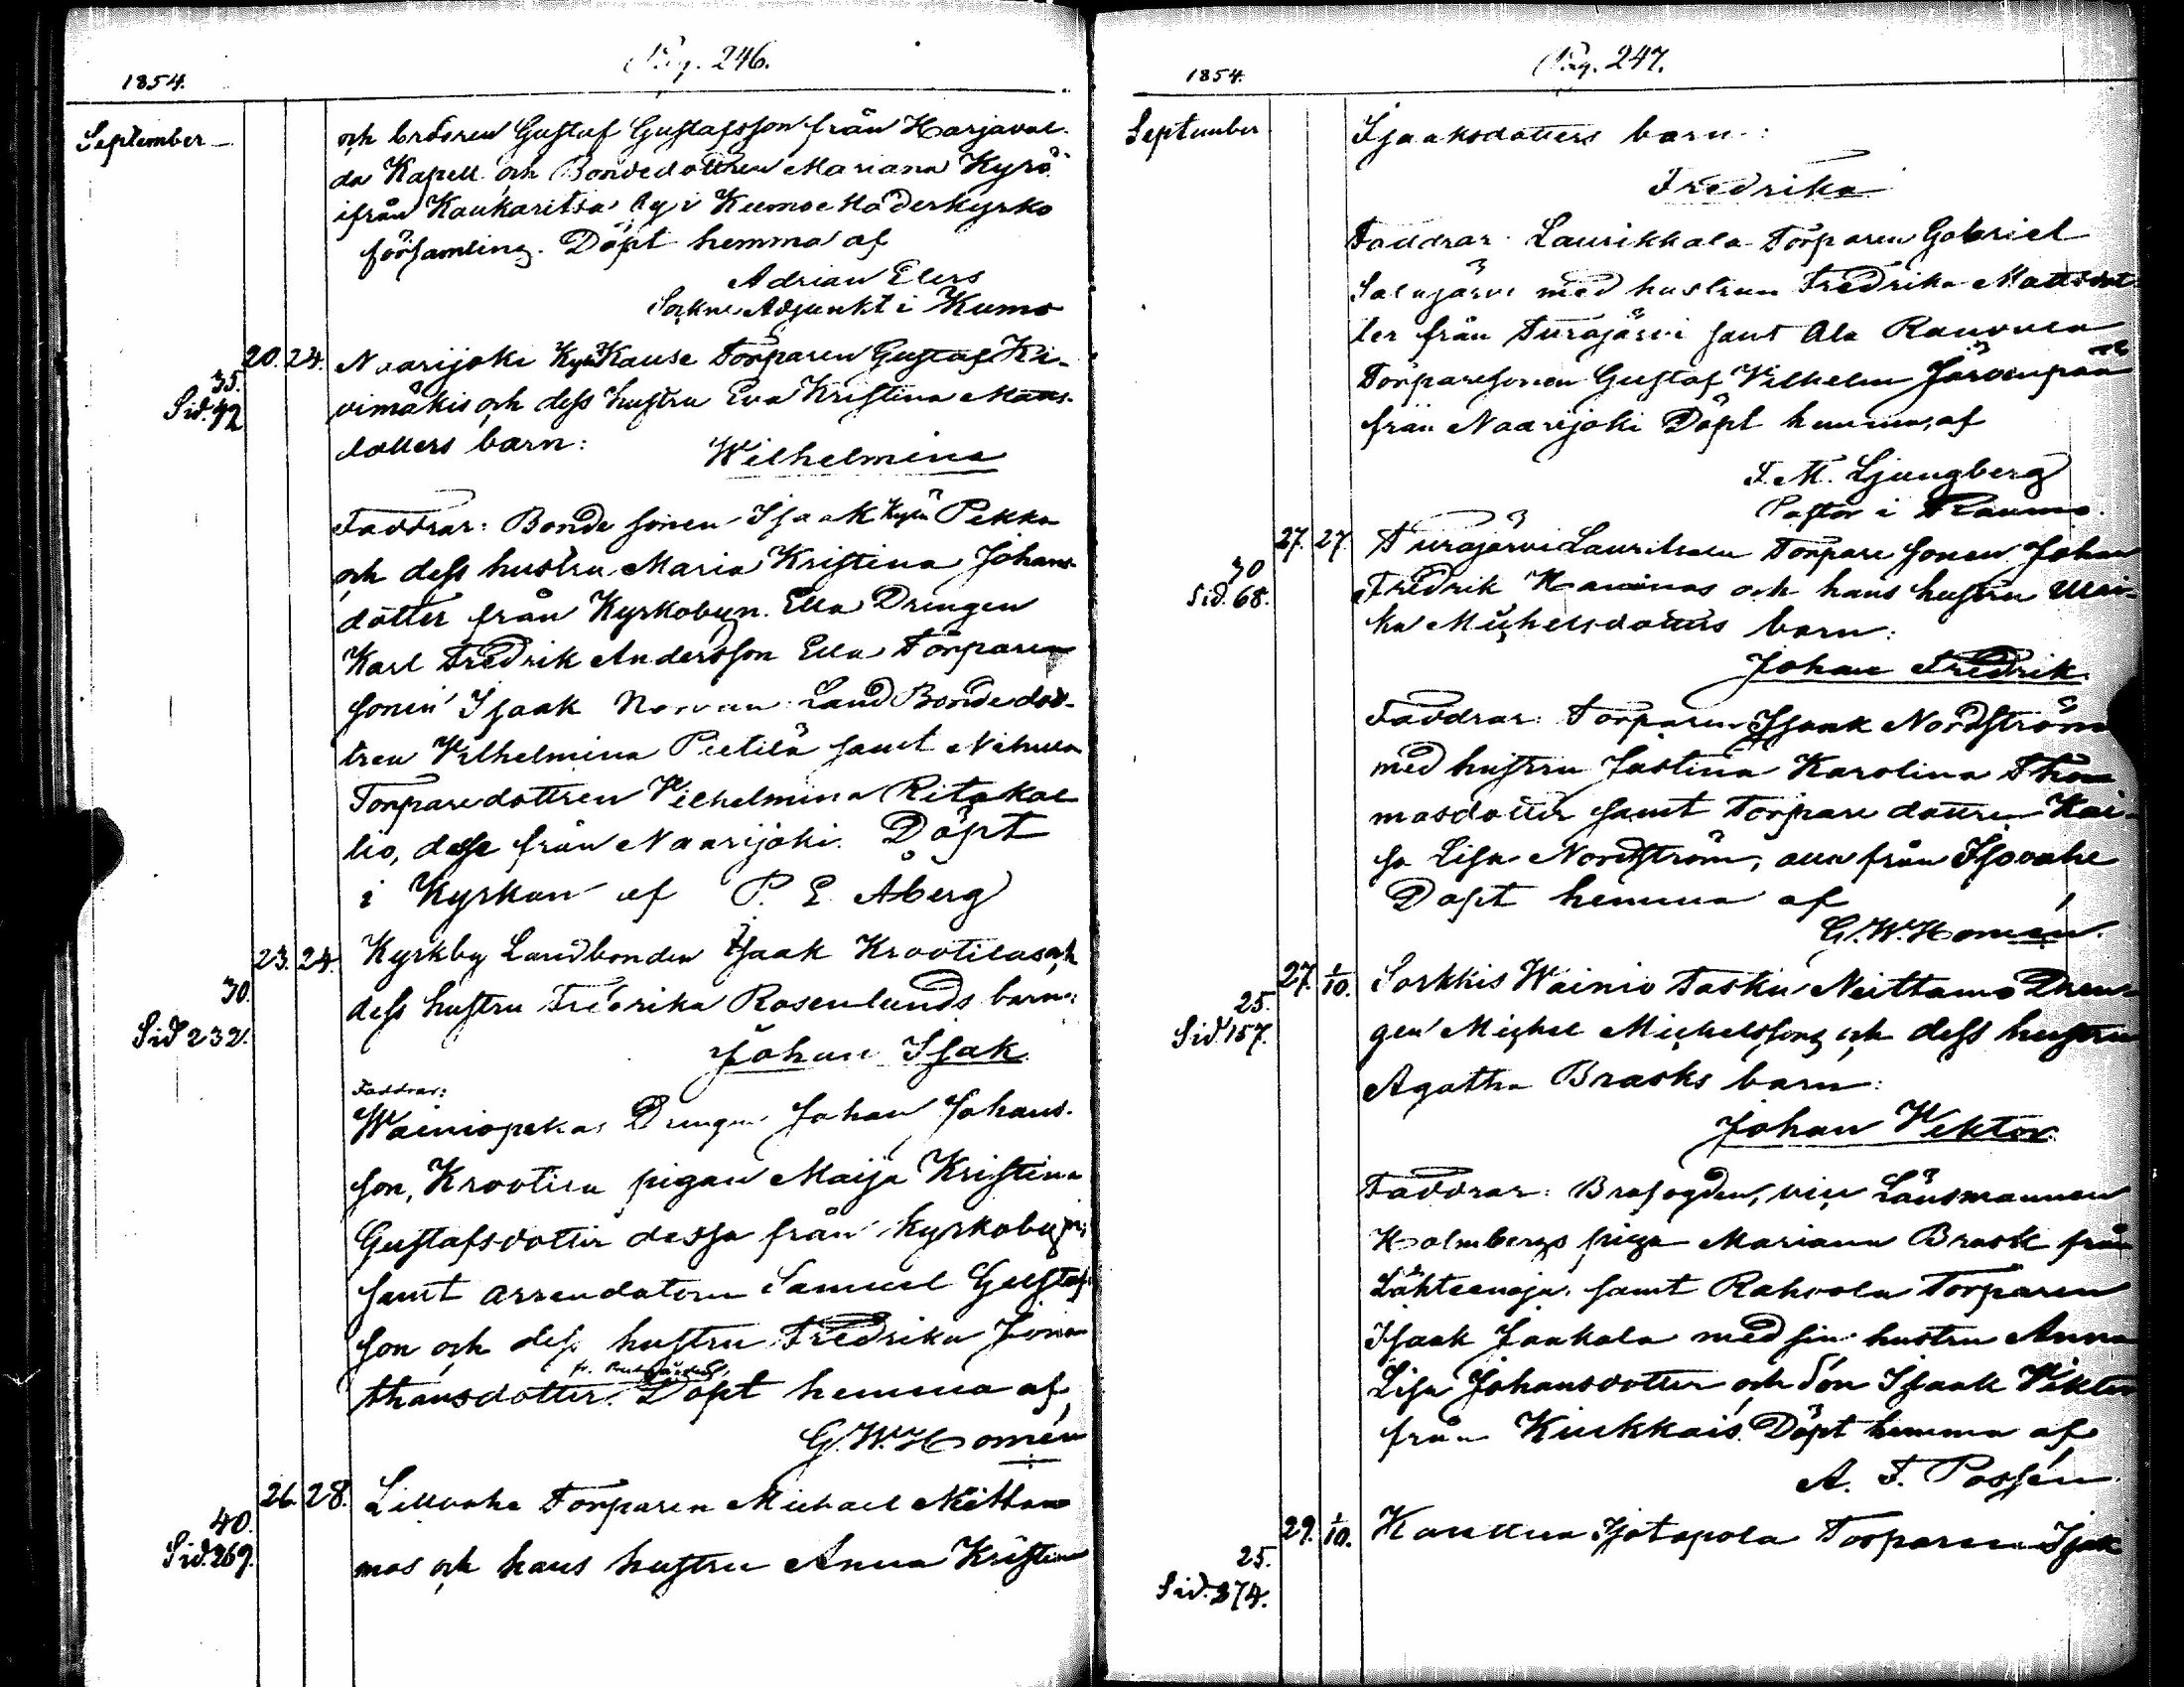 Pag. 246.
1854.
September
och brodren Gustaf Gustafsson från Harjaval-
da Kapell och Bondedottren Mariana Kyrö
ifrån Kaukaritsa by i Kumo Moderkyrko
församling. Döpt hemma af
Adrian Elers
Sockne Adjunkt i Kumo
20. 24. Naarijoki Kause Torparen Gustaf Ki-
35.
Sid. 42
vimäkis och dess hustru Eva Kristina Matts-
dotters barn:
Wilhelmina
Faddrar: Bonde sonen Isaak Pekka
och dess hustru Maria Kristina Johans-
dotter från Kyrkobyn. Ella Drengen
Karl Fredrik Andersson Ella Torpare
sonen Isaak Land Bondedot-
tren Vilhelmina Pietilä samt
Torparedottren Vilhelmina Ritakal-
lio, desse från Naarijoki. Döpt
i Kyrkan af P. E. Åberg
23. 24. Kyrkby Landbonden Isaak Krootilas och
30.
dess hustru Fredrika Rosenlunds barn:
Sid 232.
Johan Isak
Faddrar:
Wainiopekas Drengen Johan Johans-
son, Krootila pigan Maija Kristina
Gustafsdotter dessa från Kyrkobyn;
samt arrendatorn Samuel Gustafs-
son och dess hustru Fredrika Jona-
thansdotter. Döpt hemma af
G. W. Homén
26. 28. Lillvahe Torparen Michael Nitta-
40.
Sid. 269.
mos och hans hustru Anna Kristina
Pag. 247.
1854.
September
Isaaksdotters barn:
Fredrika
Faddrar: Laurikkala Torparen Gabriel
Salajärvi med hustrun Fredrika Mattsdot-
ter från Turajärvi samt Ala
Torparesonen Gustaf Vilhelm Järvenpää
från Naarijoki Döpt hemma af
F. M. Ljungberg
Pastor i Raumo.
27. 27. Turajärvi Lauritsala Torpare sonen Johan
30
Sid. 68.
Fredrik Haminas och hans hustru Ulri-
ka Michelsdotters barn:
Johan Fredrik.
Faddrar: Torparen Isaak Nordström
med hustrun Justina Karolina Tho-
masdotter samt Torpare dottren Kai-
sa Lisa Nordström, alla från Isovahe
Döpt hemma af
G. W. Homén.
27. 1/10. Sorkkis Wainio Tasku Neittamo Dren-
25.
Sid. 157.
gen Michel Michelssons och dess hustru
Agatha Brasks barn:
Johan Viktor.
Faddrar: Brofogden, vice Länsmannen
Holmbergs piga Mariana Brask från
Lähteenoja. samt Rahvola Torparen
Isaak Jaakola med sin hustru Anna
Lisa Johansdotter och son Isaak Viktor
från Kiukkais. Döpt hemma af
A. F. Possén.
29. 1/10. Kauttua Torparen Isak
25.
Sid. 374.